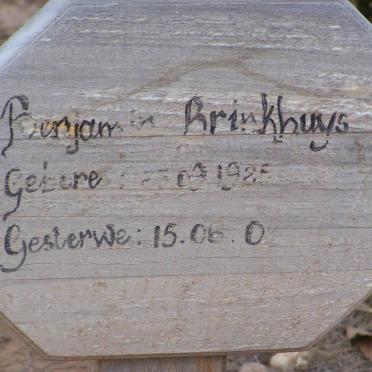 Benjamin Brinkhuys
Gebore : 09 1925
Gesterwe: 15.06. 0